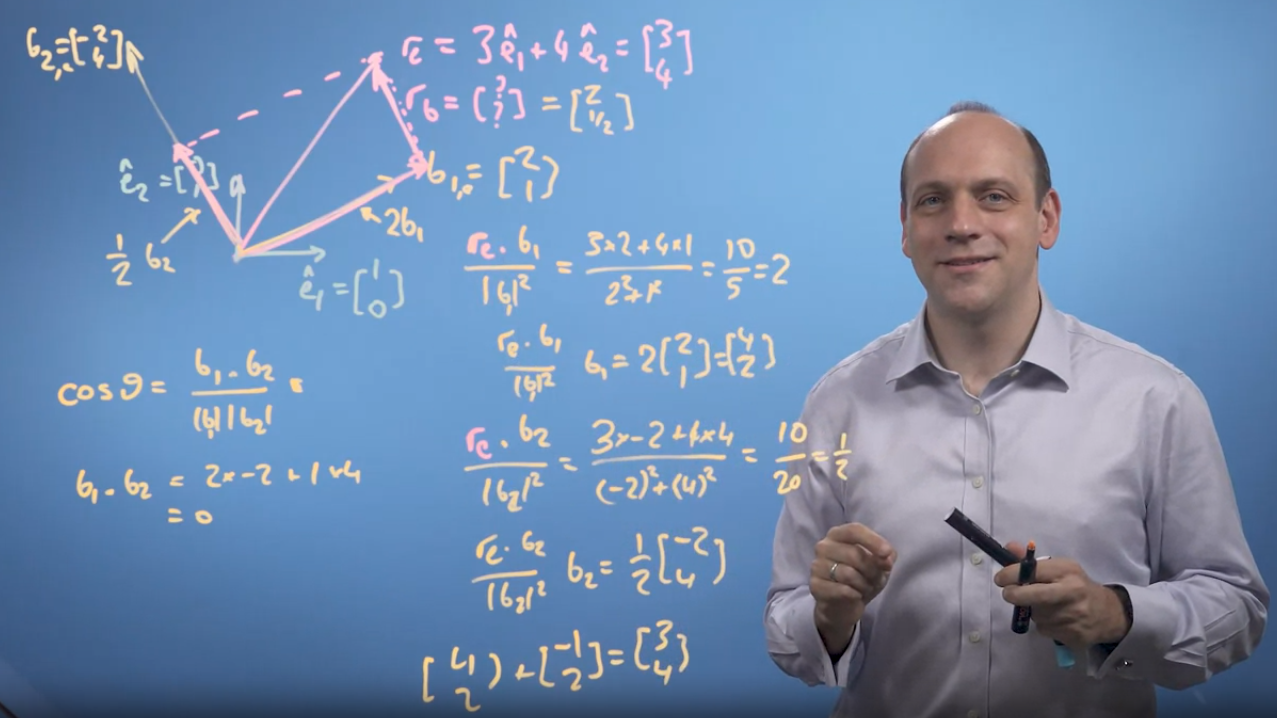 b₂,ₑ = [-2 4]
rₑ = 3ê₁ + 4ê₂ = [3 4]
r_b = [? ?] = [2 1/2]
b₁,ₑ = [2 1]
ê₂ = [0 1]
2b₁
1/2 b₂
ê₁ = [1 0]
rₑ · b₁ / |b₁|² = 3×2 + 4×1 / 2² + 1² = 10/5 = 2
rₑ · b₁ / |b₁|² b₁ = 2 [2 1] = [4 2]
cos θ = b₁ · b₂ / |b₁| |b₂|
b₁ · b₂ = 2×-2 + 1×4
= 0
rₑ · b₂ / |b₂|² = 3×-2 + 4×4 / (-2)² + (4)² = 10/20 = 1/2
rₑ · b₂ / |b₂|² b₂ = 1/2 [-2 4]
[4 2] + [-1 2] = [3 4]